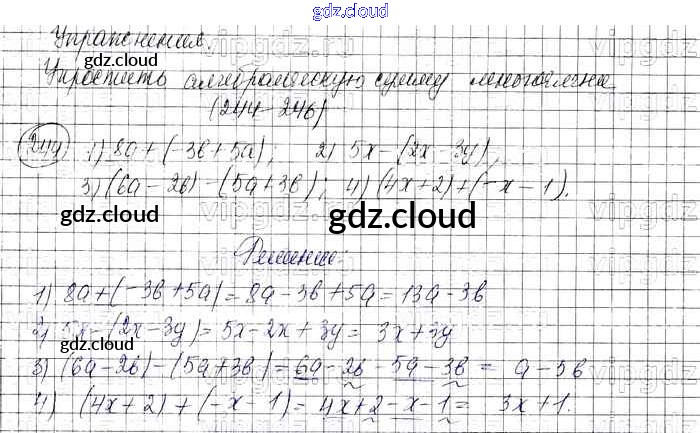 gdz.cloud
Упражнения.
Упростить алгебраическую сумму многочлена
(244-246)
gdz.cloud
244) 1) 8a+(-3b+5a); 2) 5x-(2x-3y);
3) (6a-2b)-(5a+3b); 4) (4x+2)+(-x-1).
gdz.cloud
gdz.cloud
gdz.cloud
Решение.
1) 8a+(-3b+5a)=8a-3b+5a=13a-3b
2) 5x-(2x-3y)=5x-2x+3y=3x+3y
gdz.cloud
3) (6a-2b)-(5a+3b)=6a-2b-5a-3b=a-5b
4) (4x+2)+(-x-1)=4x+2-x-1=3x+1.
gdz.cloud